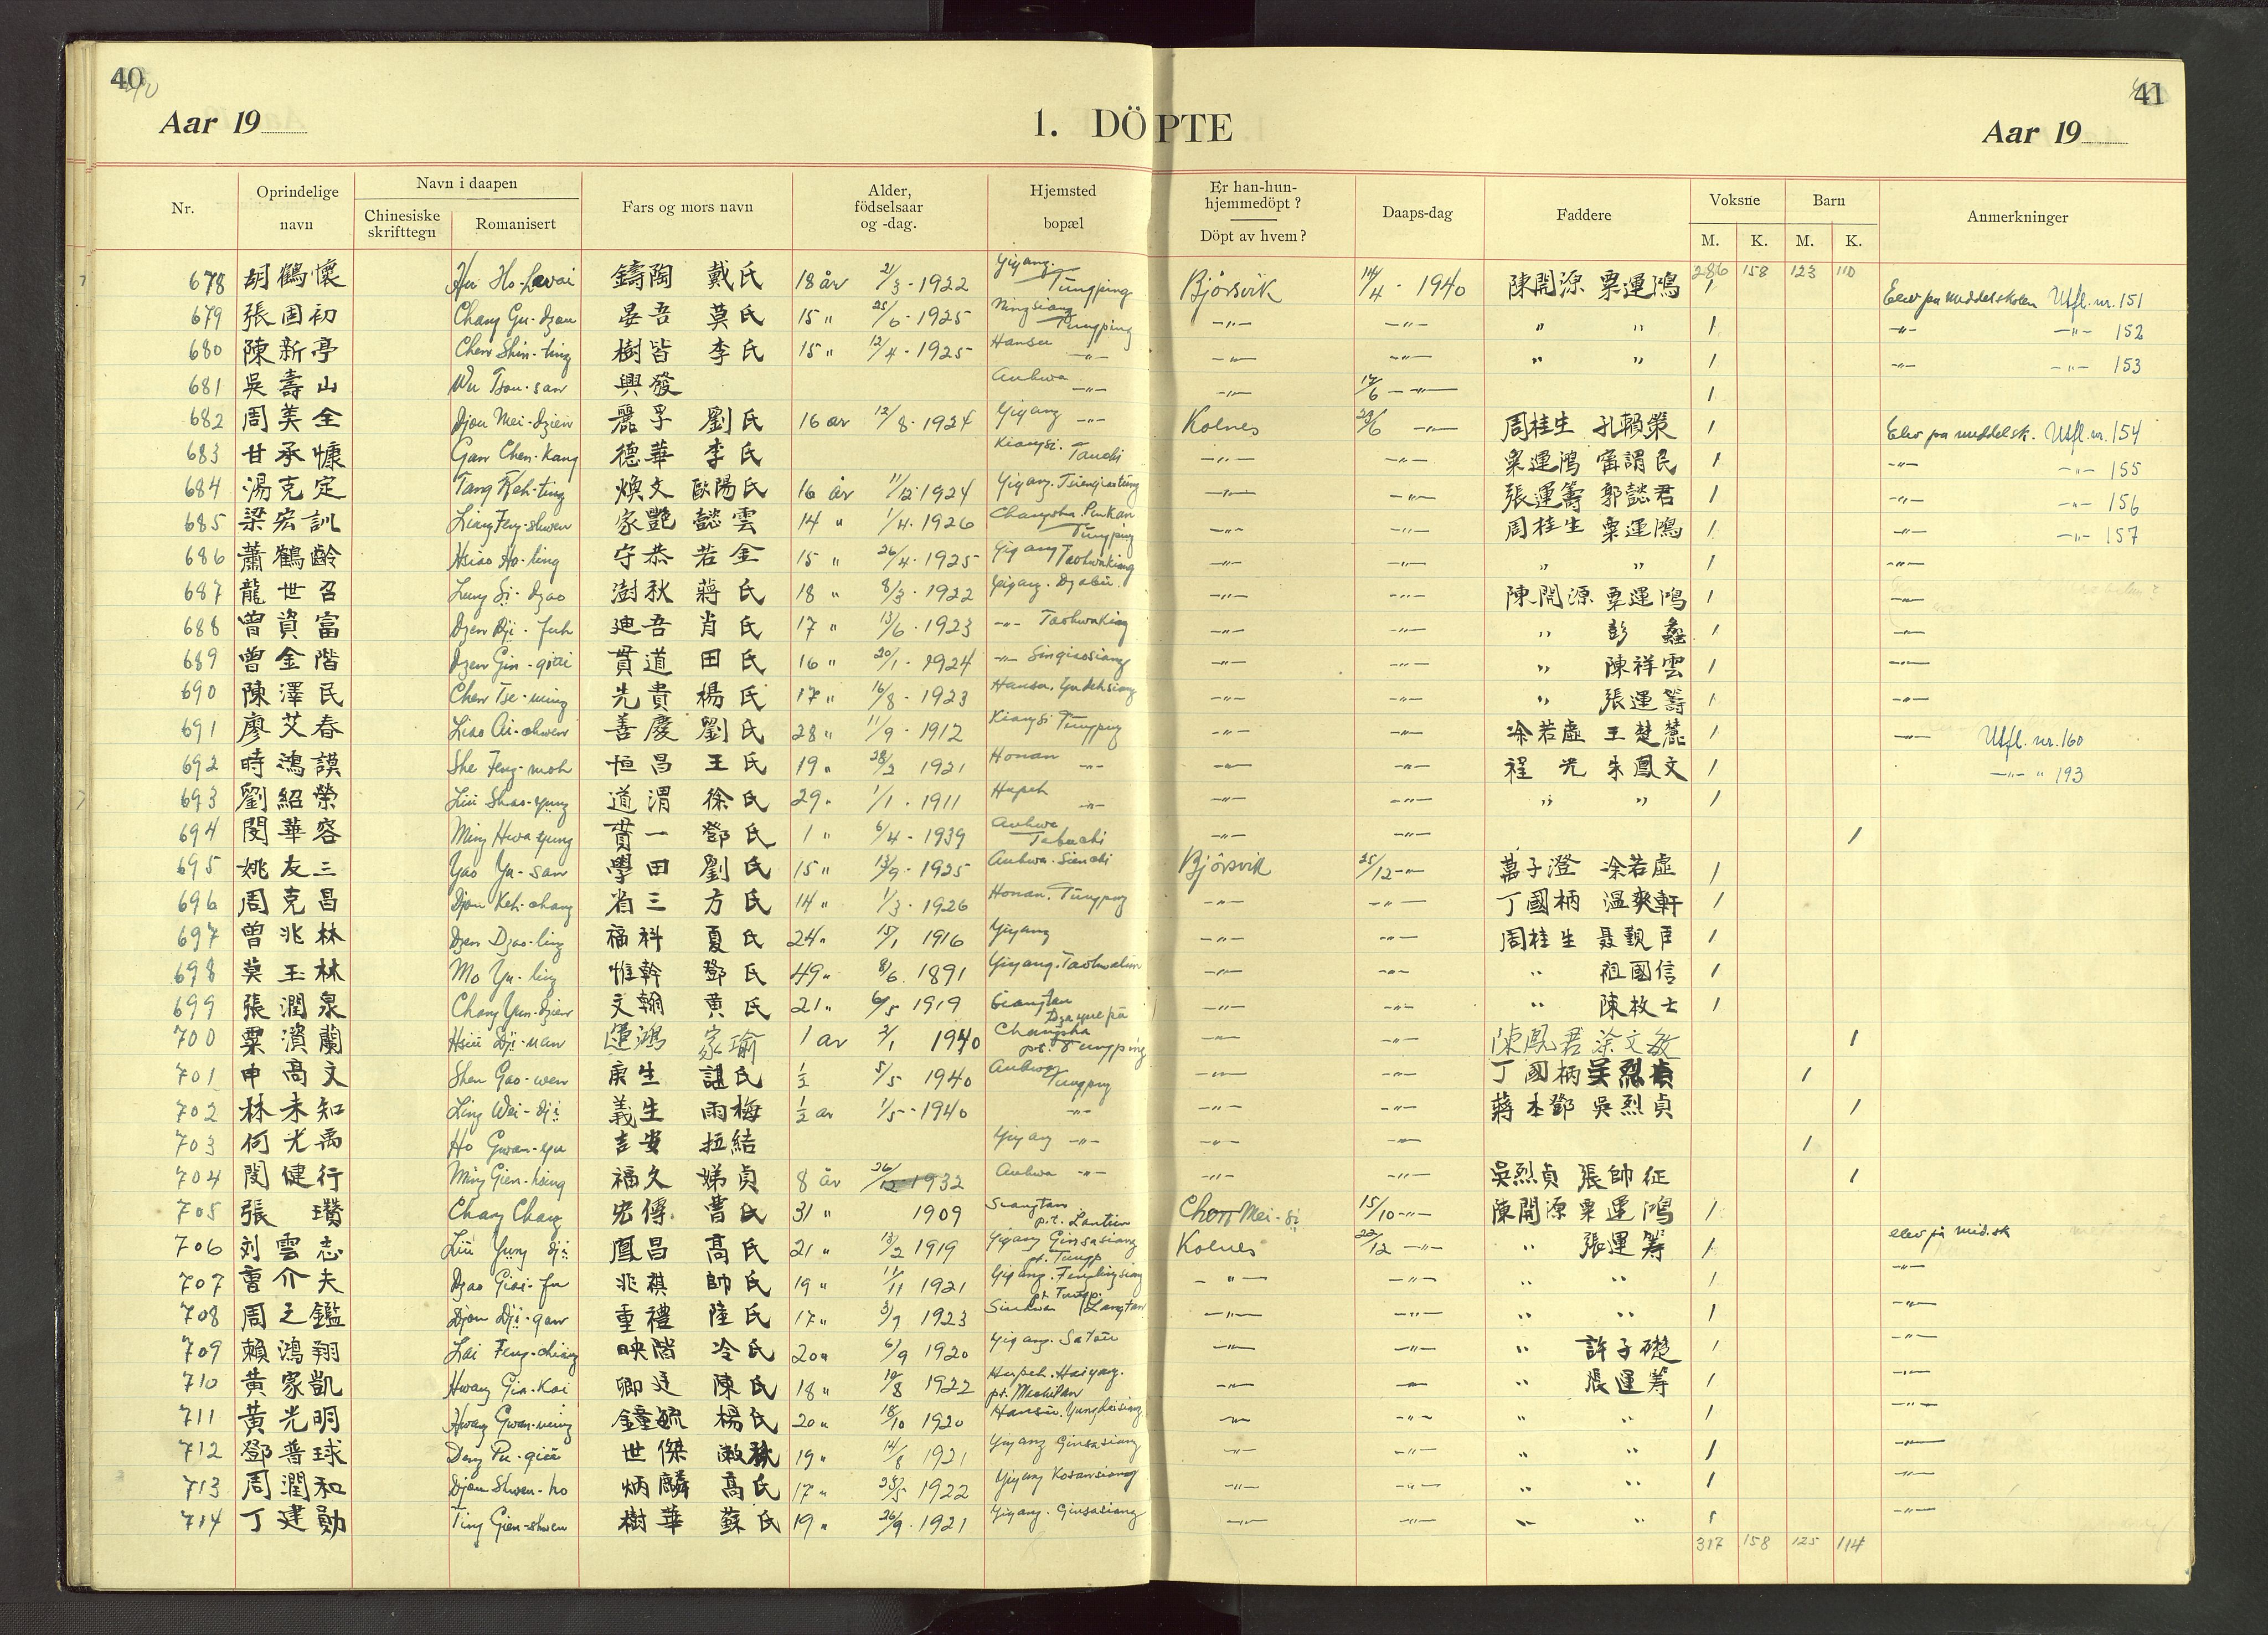 40
41
Aar 19
1. DÖPTE
Aar 19
Nr. Oprindelige navn Navn i daapen Chinesiske skrifttegn Romanisert Fars og mors navn Alder, födselsaar og -dag. Hjemsted bopæl Er han-hun-hjemmedöpt ? Döpt av hvem? Daaps-dag Faddere Voksne M. K. Barn M. K. Anmerkninger
286 158 123 110
678 胡鶴懷 Hu Ho-hwai 鑄陶 戴氏 18 år 21/3-1922 Yiyang. Tungping Björsvik 14/4 - 1940 陳開源 粟運鴻 / Elev på middelskolen Utfl. nr. 151
679 張国初 Chang Gu-dzou 晏吾 莫氏 15 " 25/6-1925 Ningsiang Tungping -"- -"- " " / -"- -"- 152
680 陳新亭 Chen Shin-ting 樹皆 李氏 15 " 12/4-1925 Hansu -"- -"- -"- " " / -"- -"- 153
681 吳壽山 Wu Tsou-san 興發 Anhwa -"- -"- 17/6 -"- /
682 周美全 Djou Mei-dzien 麗孚 劉氏 16 år 12/8-1924 Yiyang -"- Kolnes 29/6 -"- 周桂生 孔賴榮 / Elev på middelsk. Utfl. nr. 154
683 甘承慷 Gan Chen-kang 德華 李氏 Kiangsi. Tauchi -"- -"- 粟運鴻 甯謂民 / -"- -"- 155
684 湯克定 Tang Keh-ting 煥文 歐陽氏 16 år 11/12-1924 Yiyang. -"- -"- 張運籌 郭懿君 / -"- -"- 156
685 梁宏訓 Liang Feng-shwen 家艷 懿雲 14 " 1/4-1926 Changsha. Tungping -"- -"- 周桂生 粟運鴻 / -"- -"- 157
686 蕭鶴齡 Hsiao Ho-ling 守恭 若金 15 " 26/4-1925 Yiyang Taohwakiang -"- -"- " " / -"-
687 龍世召 Lung Si-dzao 澍秋 蔣氏 18 " 8/3-1922 Yiyang. -"- -"- 陳開源 粟運鴻 / -"-
688 曾資富 Dzen Dji-fuh 廸吾 肖氏 17 " 13/6-1923 -"- Taohwakiang -"- -"- " 彭 蠡 / -"-
689 曾金階 Dzen Gin-giai 貫道 田氏 16 " 20/1-1924 -"- Singiaosiang -"- -"- " 陳祥雲 / -"-
690 陳澤民 Chen Tse-ming 先貴 楊氏 17 " 16/8-1923 Hansu. -"- -"- " 張運籌 / -"-
691 廖艾春 Liao Ai-chwen 善慶 劉氏 28 " 11/9-1912 Kiangsi Tungping -"- -"- 凃若虛 王楚麓 / -"- Utfl. nr. 160
692 時鴻謨 She Feng-moh 恒昌 王氏 19 " 28/2 1921 Honan -"- -"- -"- 程光 朱鳳文 / -"- " 193
693 劉紹榮 Liü Shao-yung 道渭 徐氏 29 " 1/1-1911 Hupeh -"- -"- -"- " " /
694 閔華容 Ming Hwa-yung 貫一 鄧氏 1 " 6/4-1939 Anhwa -"- -"- /
695 姚友三 Yao Yu-san 學田 劉氏 15 " 13/9-1925 Anhwa. Björsvik 25/12 -"- 萬子澄 凃若虛 /
696 周克昌 Djou Keh-chang 省三 方氏 14 " 1/3-1926 Honan. Tungping -"- -"- 丁國柄 溫爽軒 /
697 曾兆林 Dzen Dzao-ling 福科 夏氏 24 " 15/1 1916 Yiyang -"- -"- 周桂生 聶覲臣 /
698 莫玉林 Mo Yu-ling 惟幹 鄧氏 49 " 8/6 1891 Yiyang. -"- -"- " 祖國信 /
699 張潤泉 Chang Yun-dzien 文翰 黄氏 21 " 6/5 1919 Siangtan -"- -"- " 陳枚士 /
700 粟濱蘭 運鴻 家瑜 1 år 3/1 1940 Changsha pt. Tungping -"- -"- 陳鳳君 涂文敏 /
701 申高文 Shen Gao-wen 庚生 諶氏 1/2 5/5 1940 Anhwa Tungping -"- -"- 丁國柄 吴烈貞 /
702 林未知 Ling Wei-dji 義生 雨梅 1/2 år 1/5-1940 -"- -"- -"- 蔣本鄧 吳烈貞 /
703 何光禹 Ho Gwan-yu 吉安 Yiyang -"- -"- -"- /
704 閔健行 Ming Gien-hsing 福久 娣貞 8 år 26/12 1932 Anhwa -"- -"- -"- 吳烈貞 張帥征 /
705 張瓚 Chang Chang 宏傅 曹氏 31 " 1909 Siangtan p.t. Lantien Chou Mei-si 15/10 -"- 陳開源 粟運鴻 /
706 刘雲志 Liü Yung-dji 鳳昌 高氏 21 " 13/2 1919 Yiyang Ginsasiang pt. Tungp. Kolnes 22/12 -"- " 張運籌 / elev på mid.sk
707 曹介夫 Dzao Giai-fu 兆祺 帥氏 19 " 11/11 1921 Yiyang. pt. Tungp. -"- -"- " " / -"-
708 周之鑑 Djou Dji-gan 重禮 陸氏 17 " 3/9 1923 Sinhwa Langtan -"- -"- " " / -"-
709 賴鴻翔 Lai Feng-chiang 映階 冷氏 20 " 6/9 1920 Yiyang. -"- -"- " 許子礎 / -"-
710 黄家凱 Hwang Gia-kai 卿廷 陳氏 18 " 19/8 1922 Hupeh. -"- -"- " 張運籌 / -"-
711 黃光明 Hwang Gwan-ming 鐘毓 楊氏 20 " 18/10 1920 Hansu. -"- -"- " " / -"-
712 鄧普球 Deng Pu-giu 世傑 19 " 14/8 1921 Yiyang Ginsasiang -"- -"- " " / -"-
713 周潤和 Djou Shwen-ho 炳麟 高氏 17 " 25/5 1922 Yiyang Kosansiang -"- -"- " " / -"-
714 丁建勛 Ting Gien-shwen 樹華 蘇氏 19 " 26/9-1921 Yiyang. Ginsasiang -"- -"- " " / -"-
317 158 125 114